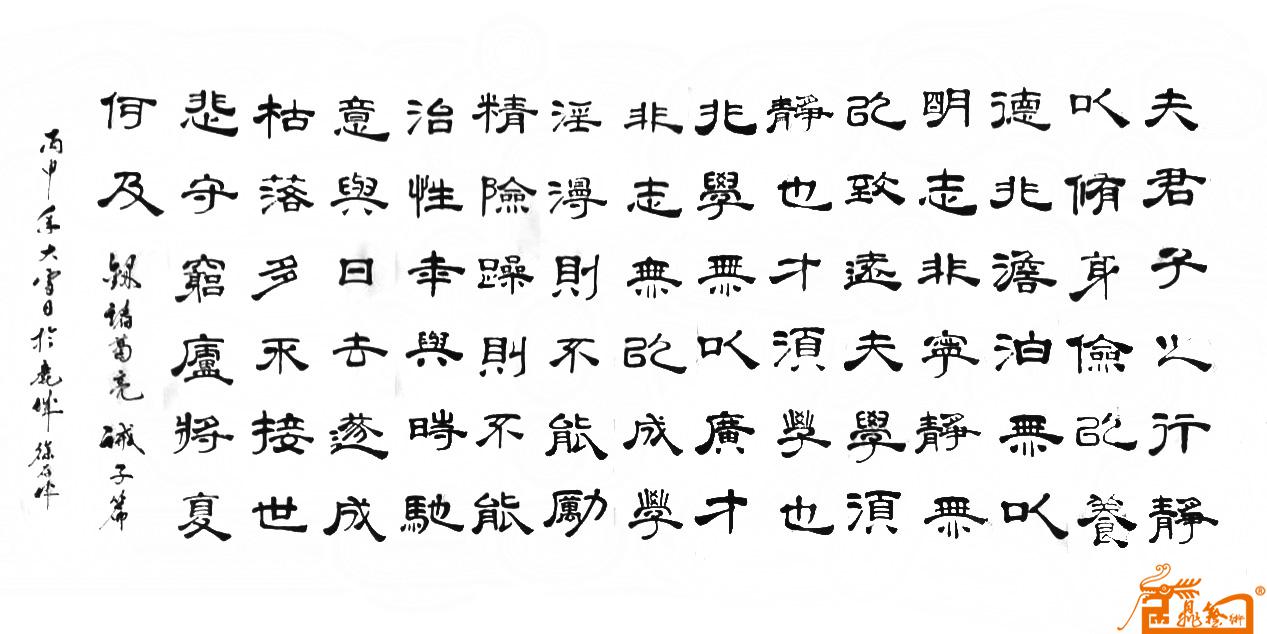 夫君子之行靜
以脩身儉以養
德非澹泊無以
明志非寧靜無
以致遠夫學須
靜也才須學也
非學無以廣才
非志無以成學
淫漫則不能勵
精險躁則不能
治性年與時馳
意與日去遂成
枯落多不接世
悲守窮廬將夏
何及 錄諸葛亮 誡子篇
丙申年大雪日於鹿城 徐石